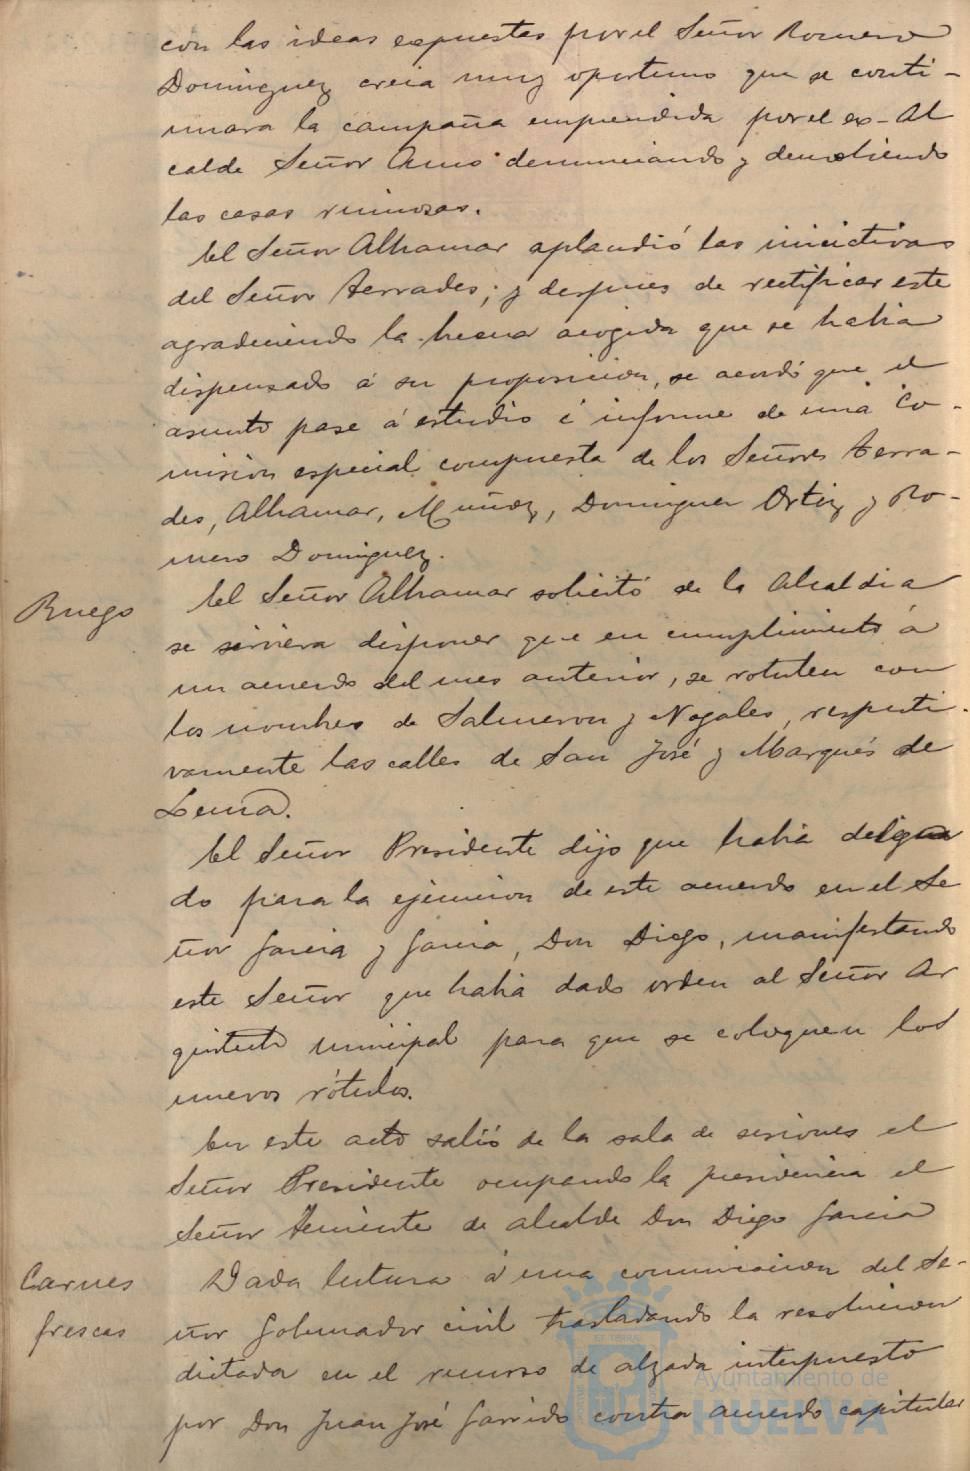 con las ideas expuestas por el Señor Romero
Dominguez creia muy oportuno que se conti-
nuara la campaña emprendida por el ex-Al
calde Señor denunciando y demoliendo
las casas ruinosas.
El Señor Alhamar aplaudió las iniciativas
del Señor Terrades; y despues de rectificar este
agradeciendo la buena acogida que se habia
dispensado á su proposicion, se acordó que el
asunto pase á estudio é informe de una Co-
mision especial compuesta de los Señores Terra-
des, Alhamar, Muñoz, Dominguez Ortiz y Ro-
mero Dominguez.
Ruego
El Señor Alhamar solicitó de la Alcaldia
se sirviera disponer que en cumplimiento á
un acuerdo del mes anterior, se rotulen con
los nombres de Salmeron y Nogales, respecti-
vamente las calles de San José y Marqués de
Lema.
El Señor Presidente dijo que habia delega
do para la ejecucion de este acuerdo en el Se
ñor Garcia y Garcia, Don Diego, manifestando
este Señor que habia dado orden al Señor Ar
quitecto municipal para que se coloquen los
nuevos rótulos.
En este acto salió de la sala de sesiones el
Señor Presidente ocupando la presidencia el
Señor Teniente de alcalde Don Diego Garcia
Carnes
frescas
Dada lectura á una comunicacion del Se-
ñor Gobernador civil trasladando la resolucion
dictada en el recurso de alzada interpuesto
por Don Juan José Garrido contra acuerdo capitular
Ayuntamiento de
HUELVA